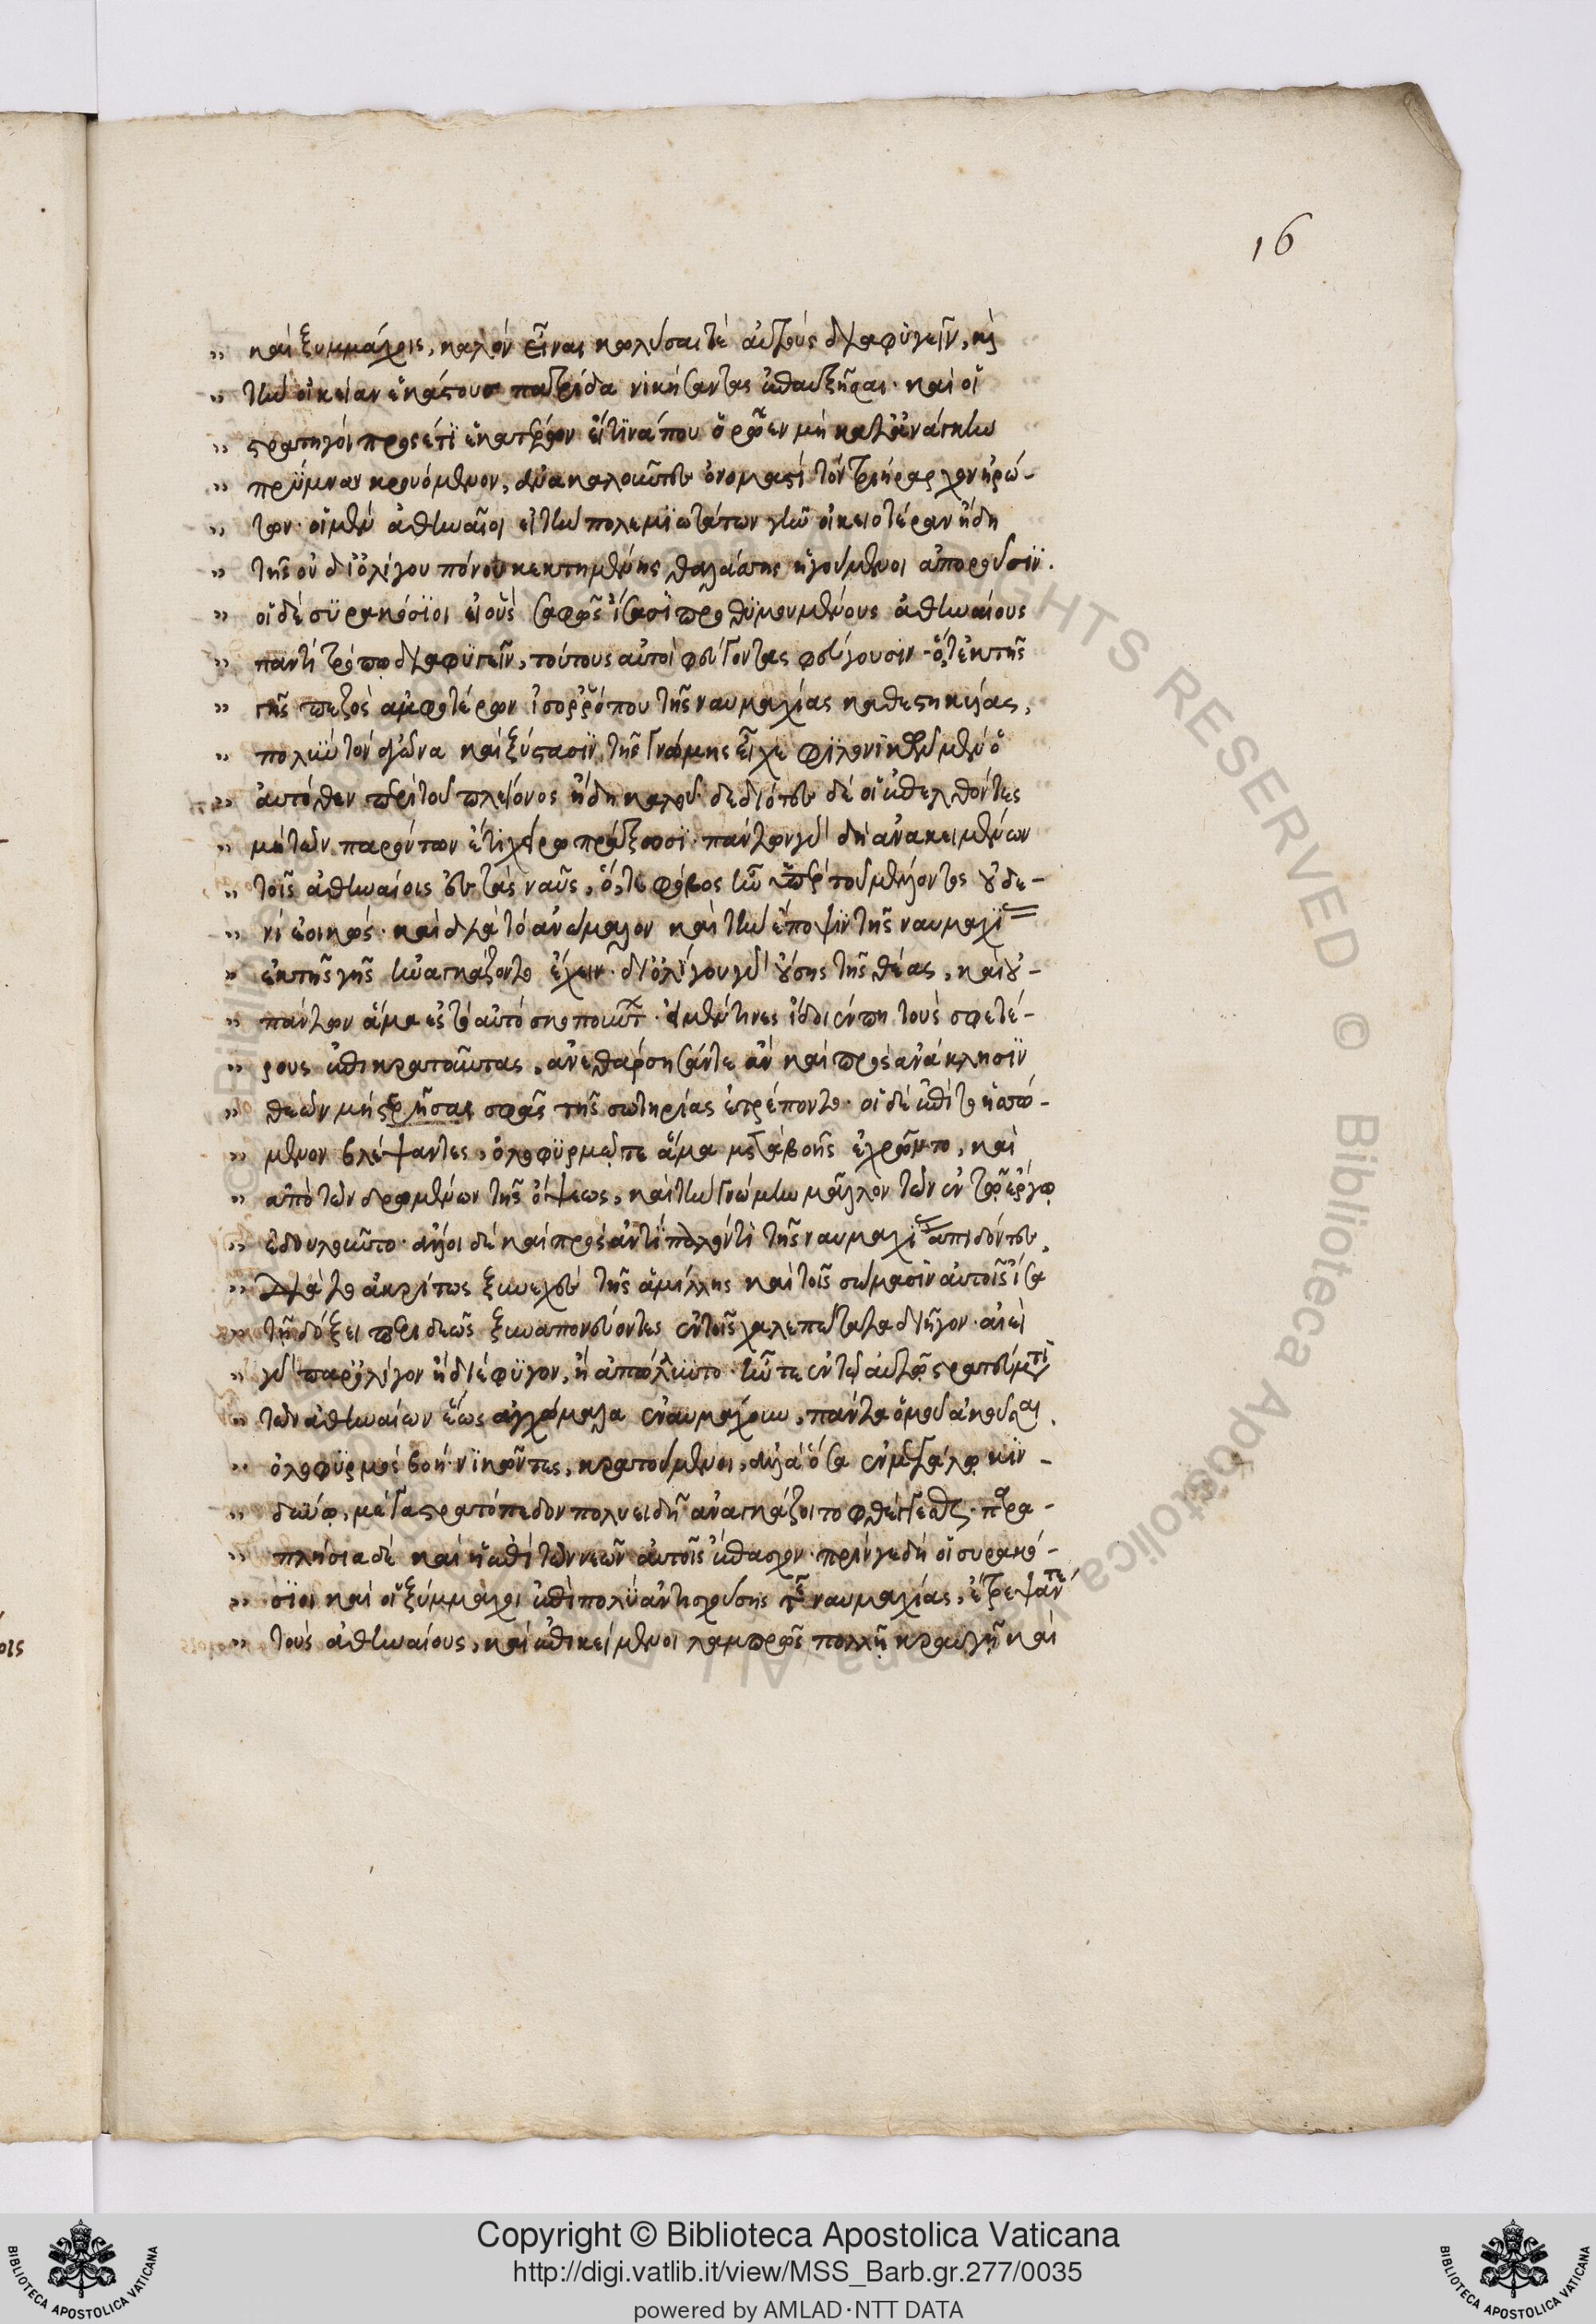 16
„ καὶ ξυμμάχοις, καλὸν εἶναι κωλύσαι τὲ αὐτοὺς διαφυγεῖν, καὶ
„ τὴν οἰκείαν ἑκάστους πατρίδα νικήσαντας ἐπαυξῆσαι· καὶ οἱ
„ στρατηγοὶ προσέτι ἑκατέρων εἴ τινά που ὁρῷεν μὴ κατ᾽ ἀνάγκην
„ πρύμναν κρουόμενον, ἀνακαλοῦντες ὀνομαστὶ τὸν τριήραρχον ἠρώ-
„ των· οἱ μὲν ἀθηναῖοι εἰ τὴν πολεμιωτάτων γῆν οἰκειοτέραν ἤδη
„ τῆς οὐ δι᾽ ὀλίγου πόνου κεκτημένης θαλάσσης ἡγούμενοι ἀποροῦσιν.
„ οἱ δὲ συρακόσιοι εἰ οὓς σαφῶς ἴσασι προθυμουμένους ἀθηναίους
„ παντὶ τρόπῳ διαφυγεῖν, τούτους αὐτοὶ φεύγοντας φεύγουσιν· ὅ,τε ἐκ τῆς
„ γῆς πεζὸς ἀμφοτέρων ἰσορρόπου τῆς ναυμαχίας καθεστηκυίας,
„ πολὺν τὸν ἀγῶνα καὶ ξύστασιν τῆς γνώμης εἶχε φιλονικῶν μὲν ὁ
„ αὐτόθεν περὶ τοῦ πλείονος ἤδη καλοῦ· δεδιότες δὲ οἱ ἐπελθόντες
„ μὴ τῶν παρόντων ἔτι χείρω πράξωσι· πάντων γὰρ δὴ ἀνακειμένων
„ τοῖς ἀθηναίοις ἐς τὰς ναῦς, ὅ,τε φόβος ἦν ὑπὲρ τοῦ μέλλοντος οὐδε-
„ νὶ ἐοικώς· καὶ διὰ τὸ ἀνώμαλον καὶ τὴν ἔποψιν τῆς ναυμαχίας
„ ἐκ τῆς γῆς ἠναγκάζοντο ἔχειν· δι᾽ ὀλίγου γὰρ οὔσης τῆς θέας, καὶ οὐ-
„ πάντων ἅμα ἐς τὸ αὐτὸ σκοπούντων· εἰ μέν τινες ἴδοιέν πῃ τοὺς σφετέ-
„ ρους ἐπικρατοῦντας, ἀνεθάρσησάν τε ἂν καὶ πρὸς ἀνάκλησιν
„ θεῶν μὴ στερῆσαι σφᾶς τῆς σωτηρίας ἐτρέποντο· οἱ δὲ ἐπὶ τὸ ἡσσώ-
„ μενον βλέψαντες, ὀλοφυρμῷ τε ἅμα μετὰ βοῆς ἐχρῶντο, καὶ
„ ἀπὸ τῶν δρωμένων τῆς ὄψεως, καὶ τὴν γνώμην μᾶλλον τῶν ἐν τῷ ἔργῳ
„ ἐδουλοῦντο· ἄλλοι δὲ καὶ πρὸς ἀντίπαλόν τι τῆς ναυμαχίας ἀπιδόντες,
„ διὰ τὸ ἀκρίτως ξυνεχὲς τῆς ἁμίλλης καὶ τοῖς σώμασιν αὐτοῖς ἴσα
„ τῇ δόξει περιδεῶς ξυναπονεύοντες ἐν τοῖς χαλεπώτατα διῆγον· αἰεὶ
„ γὰρ παρ᾽ ὀλίγον ἢ διέφυγον, ἢ ἀπώλλυντο· ἦν τε ἐν τῷ αὐτῷ στρατεύματι
„ τῶν ἀθηναίων ἕως ἀγχώμαλα ἐναυμάχουν, πάντα ὁμοῦ ἀκοῦσαι.
„ ὀλοφυρμὸς βοή· νικῶντες, κρατούμενοι, ἄλλα ὅσα ἐν μεγάλῳ κιν-
„ δύνῳ, μέγα στρατόπεδον πολυειδῆ ἀναγκάζοιτο φθέγγεσθαι· παρα-
„ πλήσια δὲ καὶ οἱ ἐπὶ τῶν νεῶν αὐτοῖς ἔπασχον· πρίν γε δὴ οἱ συρακό-
„ σιοι καὶ οἱ ξύμμαχοι ἐπὶ πολὺ ἀντισχούσης τῆς ναυμαχίας, ἔτρεψάν τε
„ τοὺς ἀθηναίους, καὶ ἐπικείμενοι λαμπρῶς πολλῇ κραυγῇ καὶ
Copyright © Biblioteca Apostolica Vaticana
http://digi.vatlib.it/view/MSS_Barb.gr.277/0035
powered by AMLAD·NTT DATA